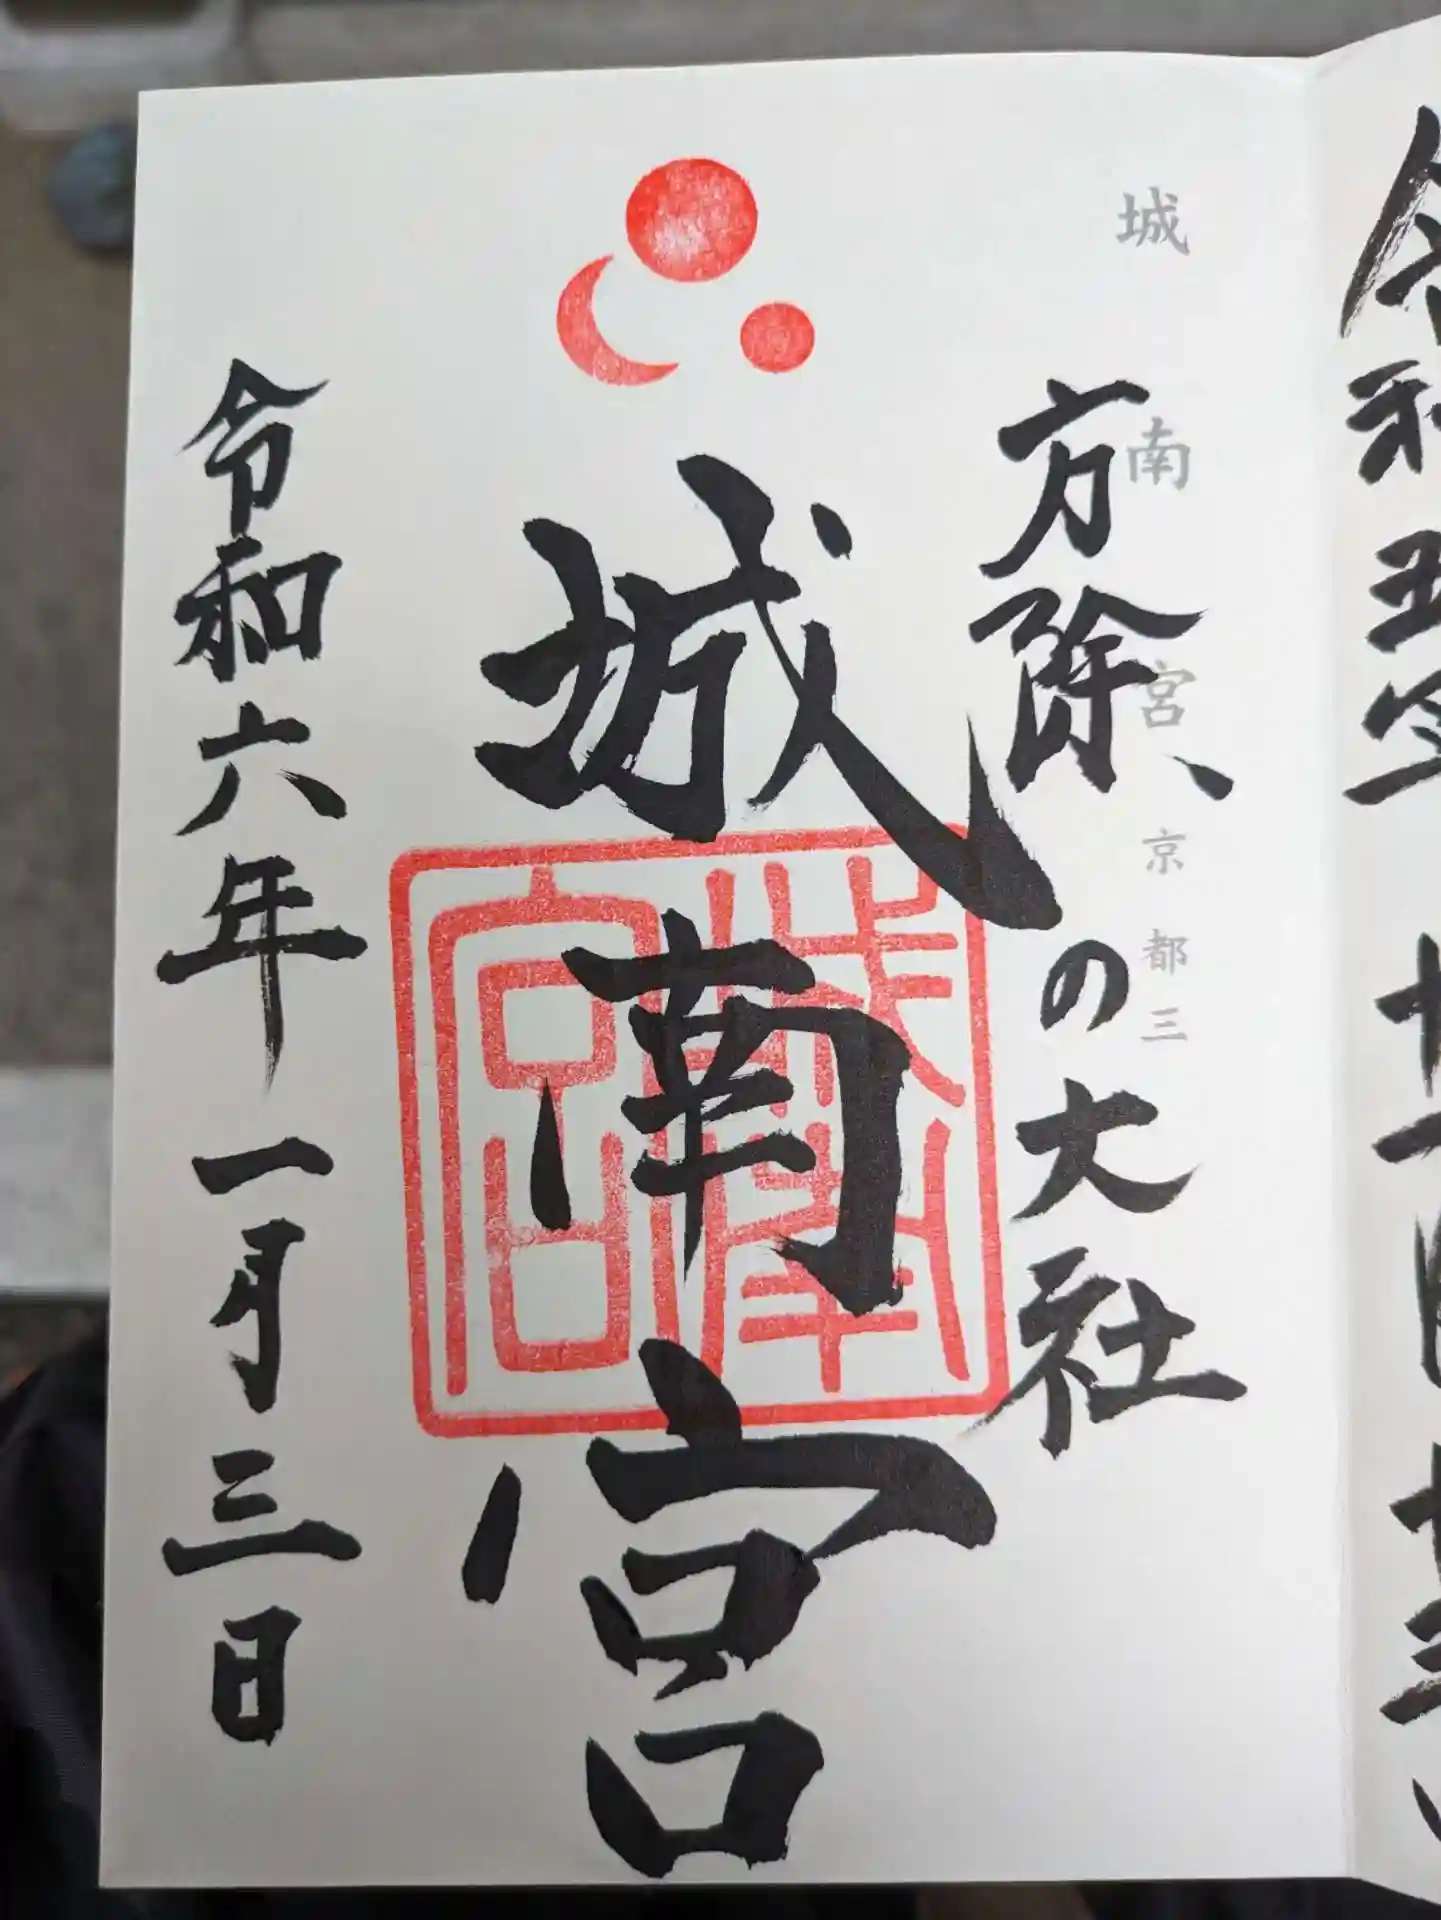 令和五年
城南宮 京都三
方除、の大社
城南宮
城南宮
令和六年一月三日